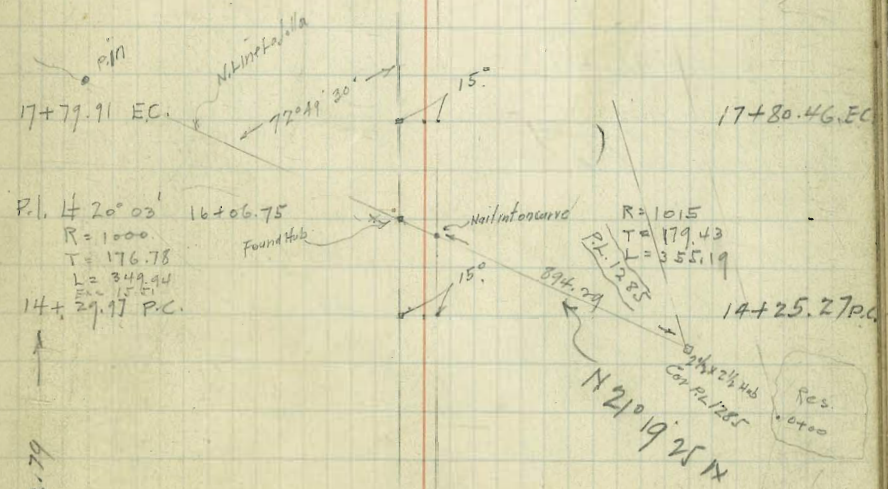 P.in
N. Line La Jolla
77° 49' 30"
15°
17+79.91 E.C.
17+80.46. E.C.
P.I. 4 20° 03' 16+06.75
R = 1000
T = 176.78
L = 349.94
14+29.97 P.C.
Found Hub
Nail in on curve
R = 1015
T = 179.43
L = 355.19
P.L. 1285
894.29
15°
14+25.27 P.C.
2½ x 2½ Hub
Cor P.L 1285
N 21° 19' 25 W
Res.
0+00
.79